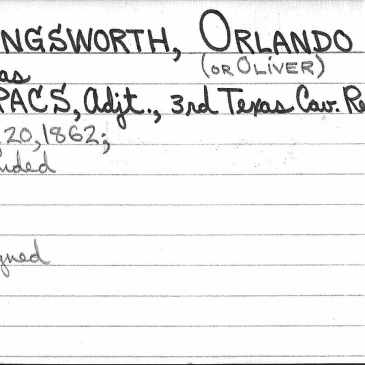 NGSWORTH, ORLANDO
(OR OLIVER)
as
PACS, Adjt., 3rd Texas Cav. Re
20, 1862;
ded
gned